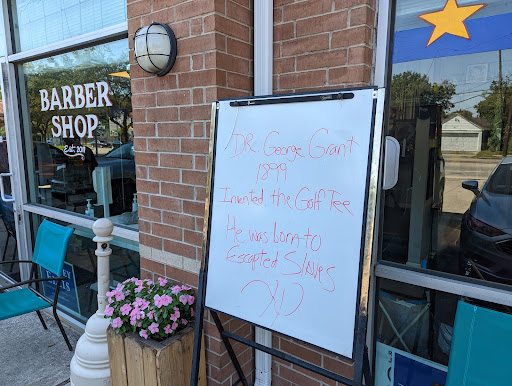 BARBER
SHOP
Est. 2011
DR. George Grant
1899
Invented the Golf Tee
He was born to
Escapted Slaves